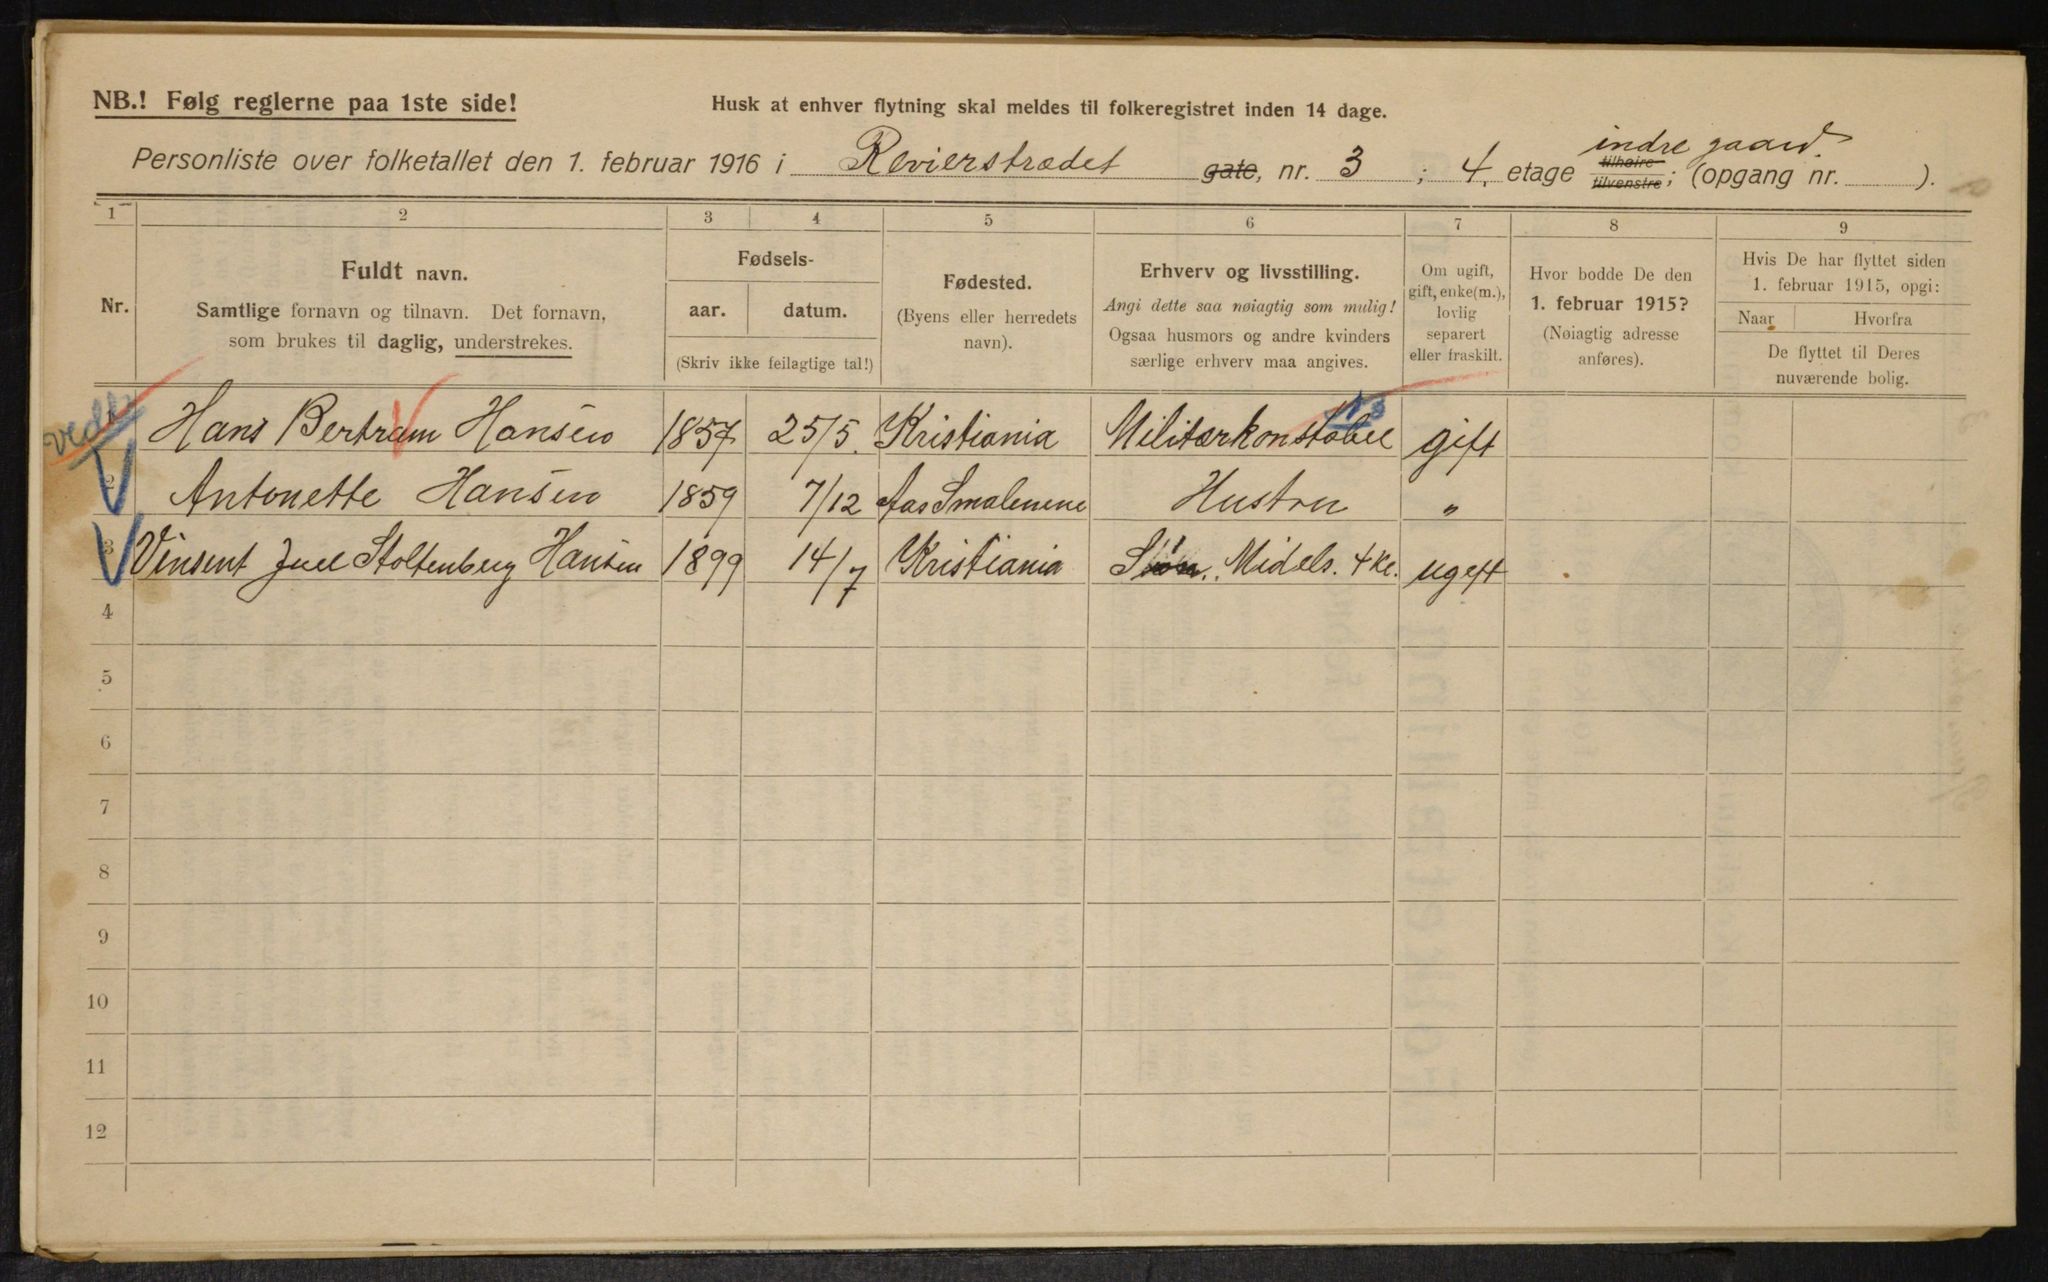 NB.! Følg reglerne paa 1ste side!
Husk at enhver flytning skal meldes til folkeregistret inden 14 dage.
indre gaard.
Personliste over folketallet den 1. februar 1916 i Revierstrædet gate, nr. 3 ; 4. etage tilhøire tilvenstre; (opgang nr. ).
1 2 3 4 5 6 7 8 9
Nr.
Fuldt navn.
Samtlige fornavn og tilnavn. Det fornavn,
som brukes til daglig, understrekes.
Fødsels-
aar. datum.
(Skriv ikke feilagtige tal!)
Fødested.
(Byens eller herredets
navn).
Erhverv og livsstilling.
Angi dette saa nøiagtig som mulig!
Ogsaa husmors og andre kvinders
særlige erhverv maa angives.
Om ugift,
gift, enke(m.),
lovlig
separert
eller fraskilt.
Hvor bodde De den
1. februar 1915?
(Nøiagtig adresse
anføres).
Hvis De har flyttet siden
1. februar 1915, opgi:
Naar Hvorfra
De flyttet til Deres
nuværende bolig.
1 Hans Bertram Hansen 1857 25/5. Kristiania Militærkonstabel gift
2 Antonette Hansen 1859 7/12 Aas Smalenene Hustru "
3 Vinsent Juel Stoltenberg Hansen 1899 14/7 Kristiania Søn. Midels. 4 kl. ugift
4
5
6
7
8
9
10
11
12